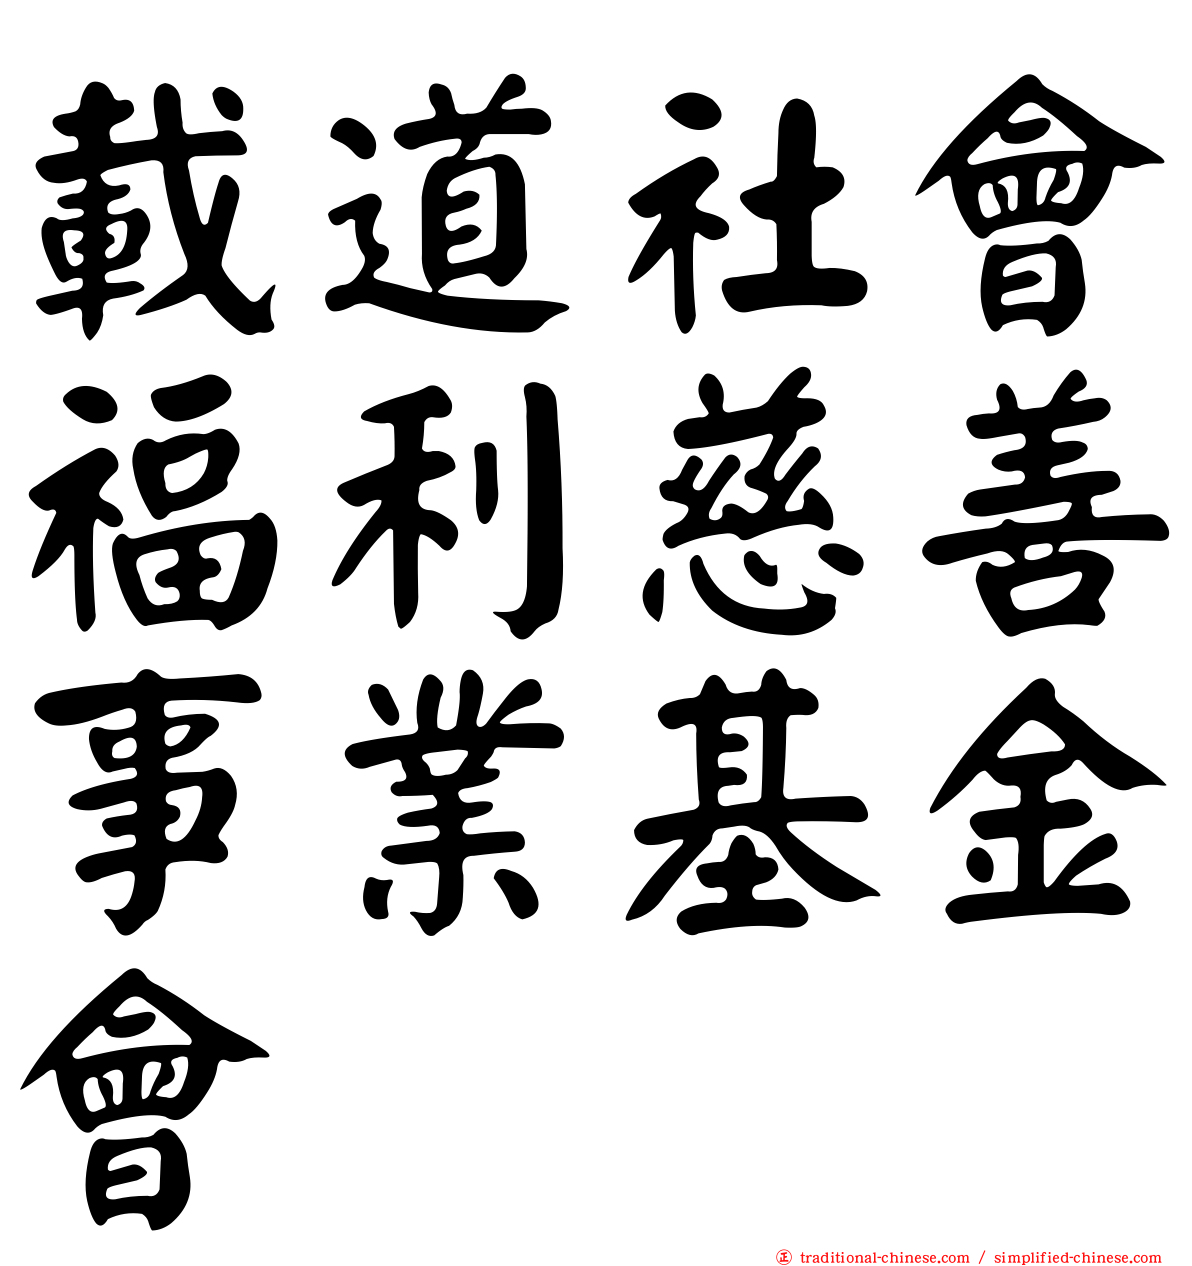 載道社會
福利慈善
事業基金
會
㊣ traditional-chinese.com / simplified-chinese.com